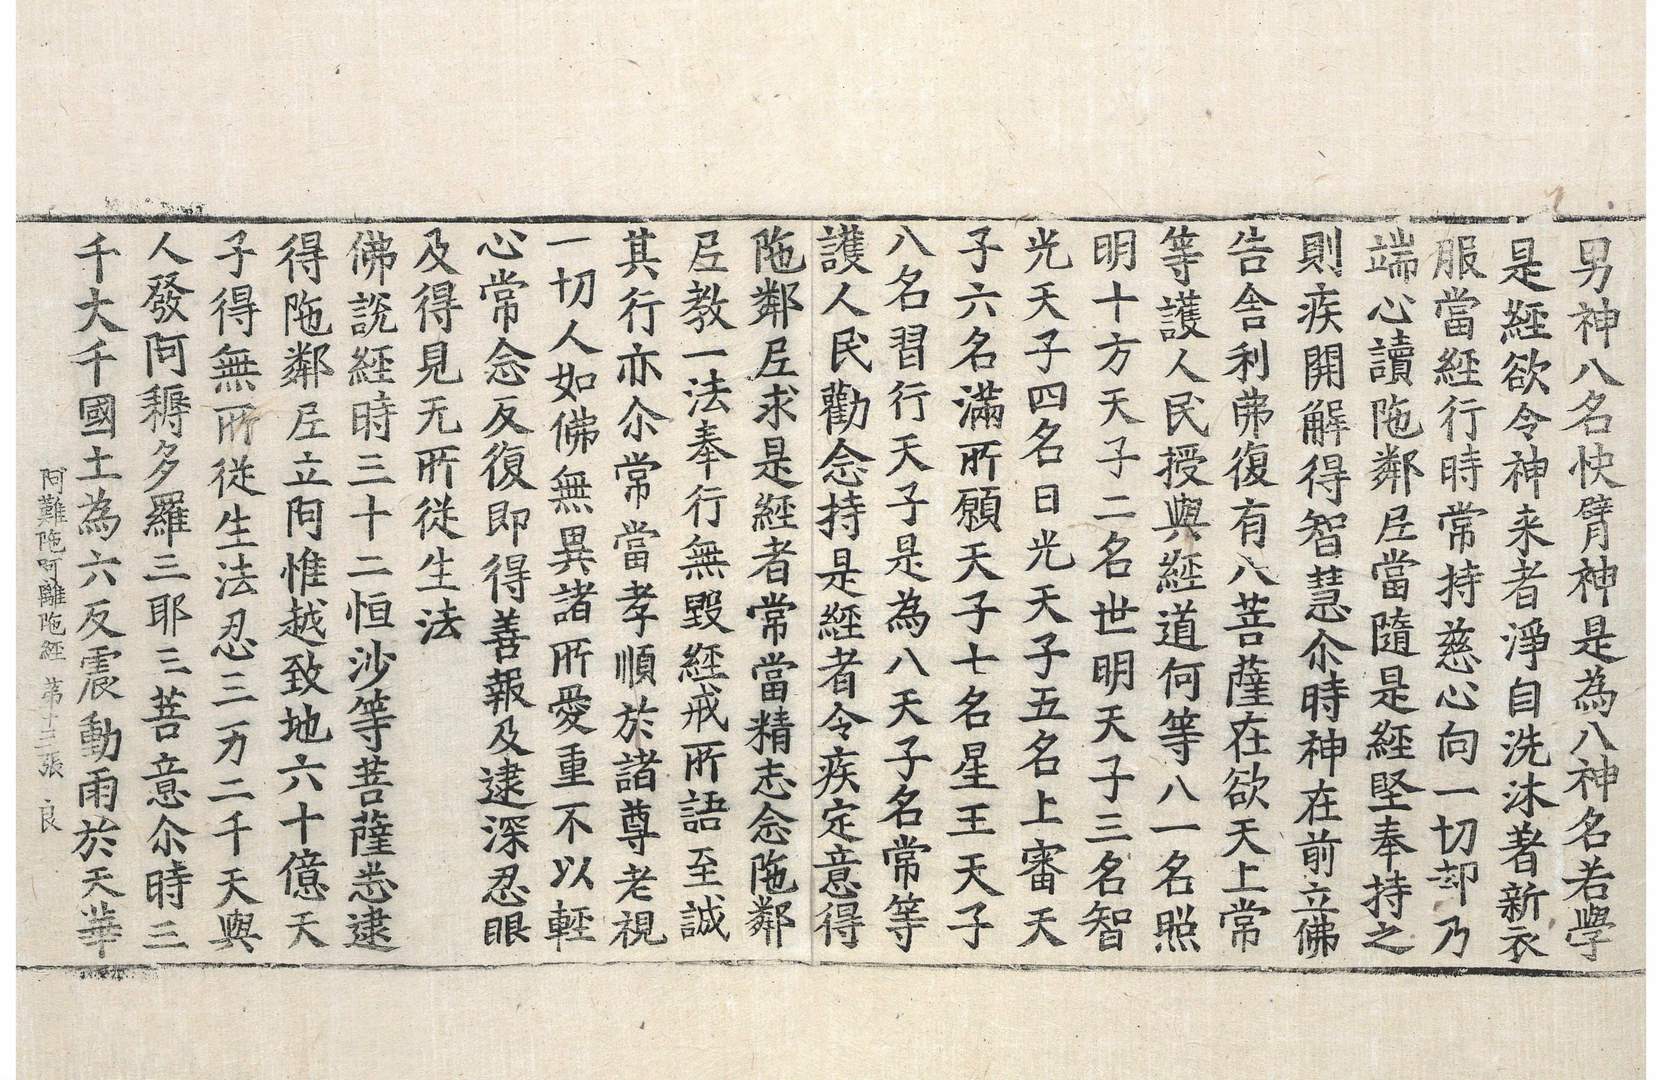 男神八名快臂神是為八神名若學
是經欲令神来者淨自洗沐著新衣
服當經行時常持慈心向一切却乃
端心讀陁鄰尼當隨是經堅奉持之
則疾開解得智慧尒時神在前立佛
告舍利弗復有八菩薩在欲天上常
等護人民授與經道何等八一名照
明十方天子二名世明天子三名智
光天子四名日光天子五名上審天
子六名滿所願天子七名星王天子
八名習行天子是為八天子名常等
護人民勸念持是經者令疾定意得
陁鄰尼求是經者常當精志念陁鄰
尼教一法奉行無毀經戒所語至誠
其行亦尒常當孝順於諸尊老視
一切人如佛無異諸所愛重不以輕
心常念反復即得善報及逮深忍眼
及得見无所從生法
佛說經時三十二恒沙等菩薩悉逮
得陁鄰尼立阿惟越致地六十億天
子得無所從生法忍三万二千天與
人發阿耨多羅三耶三菩意尒時三
千大千國土為六反震動雨於天華
阿難陁阿離陁經 第十三張 良